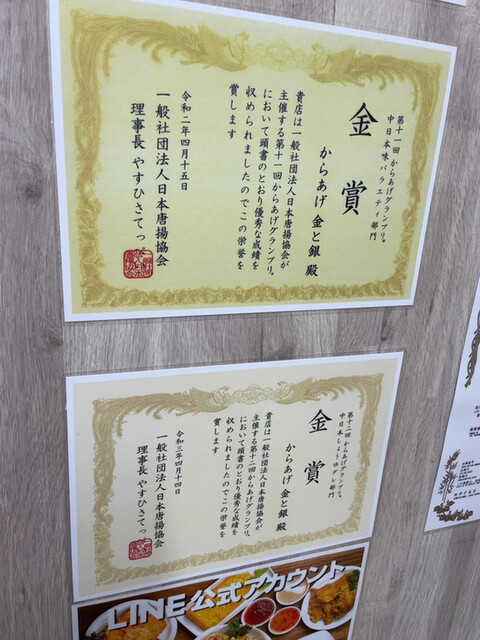 第十一回 からあげグランプリ®
中日本味バラエティ部門
金賞
からあげ 金と銀 殿
貴店は一般社団法人日本唐揚協会が
主催する第十一回からあげグランプリ®
において頭書のとおり優秀な成績を
収められましたのでこの栄誉を
賞します
令和二年四月十五日
一般社団法人日本唐揚協会
理事長 やすひさてっぺい
第十二回 からあげグランプリ®
中日本しょうゆダレ部門
金賞
からあげ 金と銀 殿
貴店は一般社団法人日本唐揚協会が
主催する第十二回からあげグランプリ®
において頭書のとおり優秀な成績を
収められましたのでこの栄誉を
賞します
令和三年四月十四日
一般社団法人日本唐揚協会
理事長 やすひさてっぺい
LINE公式アカウント